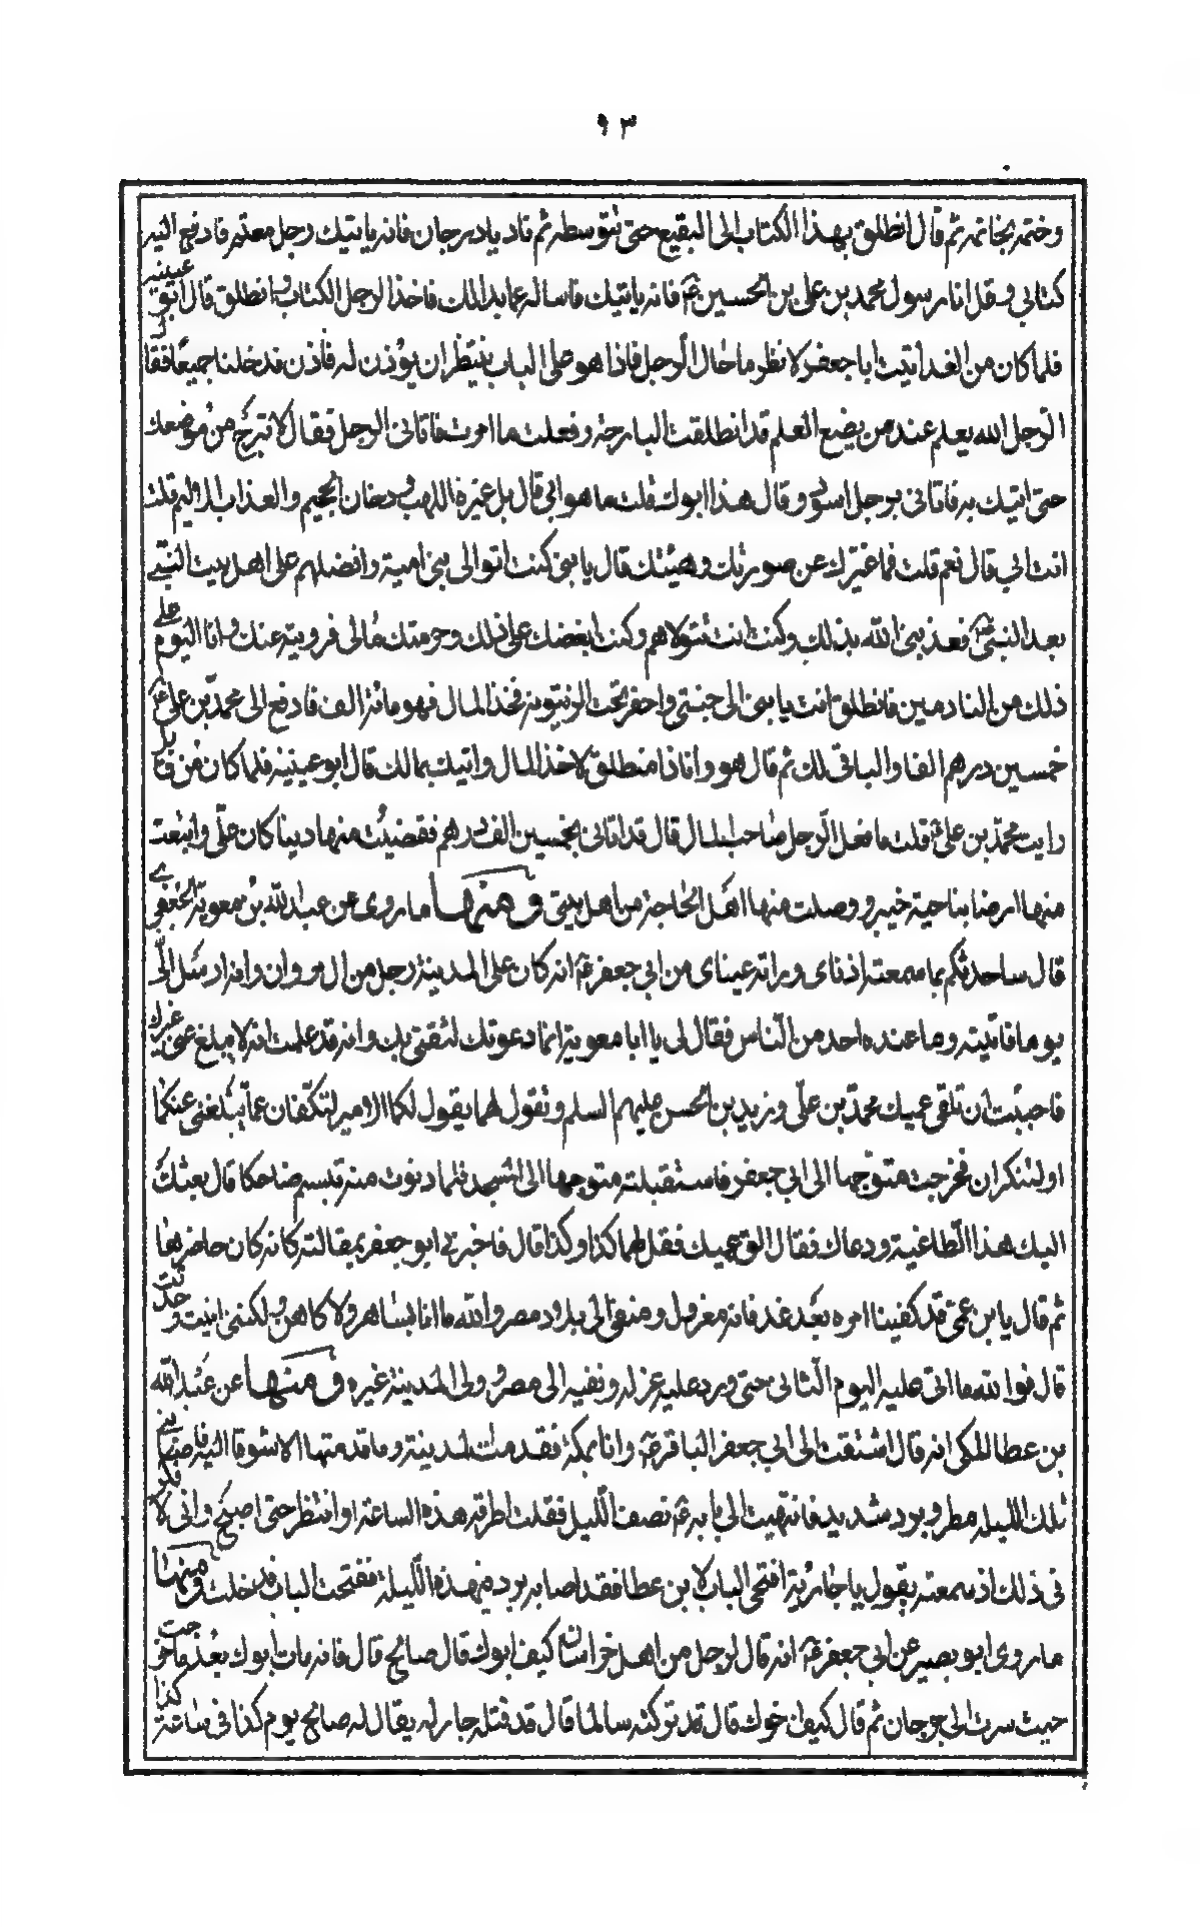 ٩٣
وختمه بخاتمه ثم قال انطلق بهذا الكتاب الى البقيع حتى تتوسطه ثم ناد يا درجان فانه ياتيك رجل معتم فادفع اليه
كتابي وقل انا رسول محمد بن على بن الحسين ع فانه ياتيك فاساله عما بدا لك فاخذ الرجل الكتاب وانطلق قال ابو عيينه
فلما كان من الغد اتيت ابا جعفر لانظر ما حال الرجل فاذا هو على الباب ينتظر ان يؤذن له فاذن فدخلنا جميعا فقال
الرجل الله يعلم عند من يضع العلم قد انطلقت البارحة وفعلت ما امرت فاتاني الرجل فقال لا تبرح من موضعك
حتى اتيك به فاتاني برجل اسود وقال هذا ابوك قلت ما هو ابي قال بل غيره اللهب ودخان الجحيم والعذاب الاليم قلت
انت ابي قال نعم قلت فما غيرك عن صورتك وهيئتك قال يا بني كنت اتوالى بني امية وافضلهم على اهل بيت النبي
بعد النبي ص فعذبني الله بذلك وكنت انت تتولاهم وكنت ابغضك على ذلك وحرمتك مالى فزويته عنك وانا اليوم على
ذلك من النادمين فانطلق انت يا بني الى جنتي واحفر تحت الزيتونة فخذ المال فهو مائة الف فادفع الى محمد بن على ع
خمسين درهم الفا والباقي لك ثم قال هو وانا ذا منطلق لاخذ المال واتيك بمالك قال ابو عيينه فلما كان من قابل
رايت محمد بن على ع قلت ما فعل الرجل صاحب المال قال قد اتاني بخمسين الف درهم فقضيت منها دينا كان على وابتعت
منها ارضا بناحية خيبر ووصلت منها اهل الحاجة من اهل بيتى ومنها ما روى عن عبد الله بن معوية الجعفري
قال ساحدثكم بما سمعته اذناى وراته عيناى من ابي جعفر ع انه كان على المدينة رجل من ال مروان وانه ارسل الى
يوما فاتيته وما عنده احد من الناس فقال لى يا ابا معوية انما دعوتك لثقتى بك وانه قد علمت انه لا يبلغ عنى غيرك
فاحببت ان تلقى عميك محمد بن على وزيد بن الحسن عليهم السلم وتقول لهما يقول لكما الامير لتكفان عما يبلغنى عنكما
او لتنكران فخرجت متوجها الى ابي جعفر فاستقبلته متوجها الى المسجد فلما دنوت منه تبسم ضاحكا قال بعثك
اليك هذا الطاغية ودعاك فقال الق عميك فقل لهما كذا وكذا قال فاخبرني ابو جعفر بمقالته كانه كان حاضرها
ثم قال يا بن عمي قد كفينا امره بعد غد فانه معزول ومنفى الى بلاد مصر والله ما انا بساحر ولا كاهن ولكنني اتيت وحدثت
قال فوالله ما اتى عليه اليوم الثاني حتى ورد عليه عزله ونفيه الى مصر وولى المدينة غيره ومنها عن عبد الله
بن عطا المكي انه قال اشتقت الى ابي جعفر الباقر ع وانا بمكة فقدمت المدينة وما قدمتها الا شوقا اليه فاصابني
تلك الليله مطر وبرد شديد فانتهيت الى بابه ع نصف الليل فقلت اطرقه هذه الساعة او انتظر حتى اصبح وانى لافكر
فى ذلك اذ سمعته يقول يا جارية افتحى الباب لابن عطا فقد اصابه برد فى هذه الليلة ففتحت الباب فدخلت ومنها
ما روى ابو بصير عن ابي جعفر ع انه قال لرجل من اهل خراسان كيف ابوك قال صالح قال فانه مات ابوك بعد ما خرجت
حيث سرت الى جرجان ثم قال كيف اخوك قال قد تركته سالما قال قد قتله جار له يقال له صالح يوم كذا فى ساعة كذا